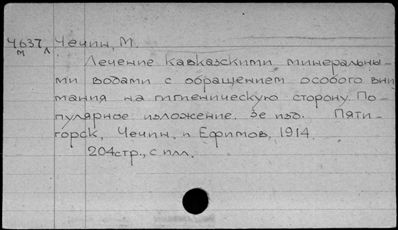 Ч637 Чечин, М.
м л
Лечение кавказскими минеральны-
ми водами с обращением особого вни
мания на гигиеническую сторону. По-
пулярное изложение. 3е изд. Пяти-
горск, Чечин и Ефимов, 1914.
204стр., с илл.